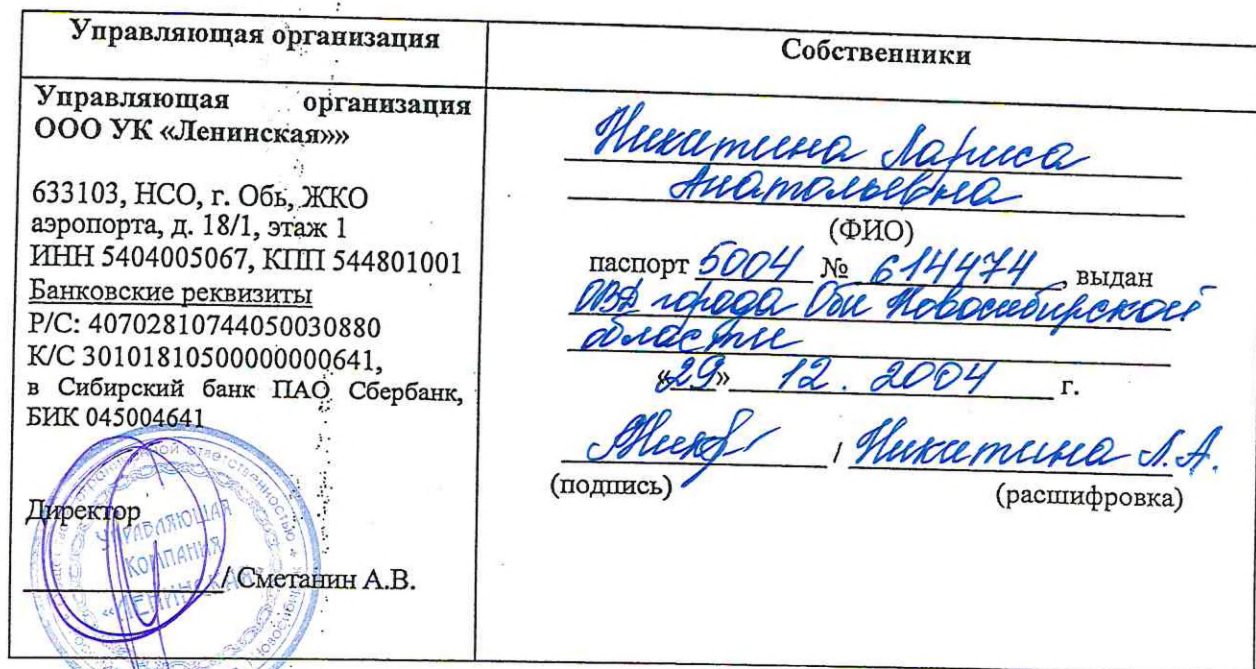 Управляющая организация
Управляющая организация
ООО УК «Ленинская»»
633103, НСО, г. Обь, ЖКО
аэропорта, д. 18/1, этаж 1
ИНН 5404005067, КПП 544801001
Банковские реквизиты
Р/С: 40702810744050030880
К/С 30101810500000000641,
в Сибирский банк ПАО Сбербанк,
БИК 045004641
Директор
/ Сметанин А.В.
ответственностью
УПРАВЛЯЮЩАЯ
КОМПАНИЯ
«ЛЕНИНСКАЯ»
Собственники
Никитина Лариса
Анатольевна
(ФИО)
паспорт 5004 № 614474, выдан
ОВД города Оби Новосибирской
области
«29» 12. 2004 г.
/ Никитина Л.А.
(подпись) (расшифровка)